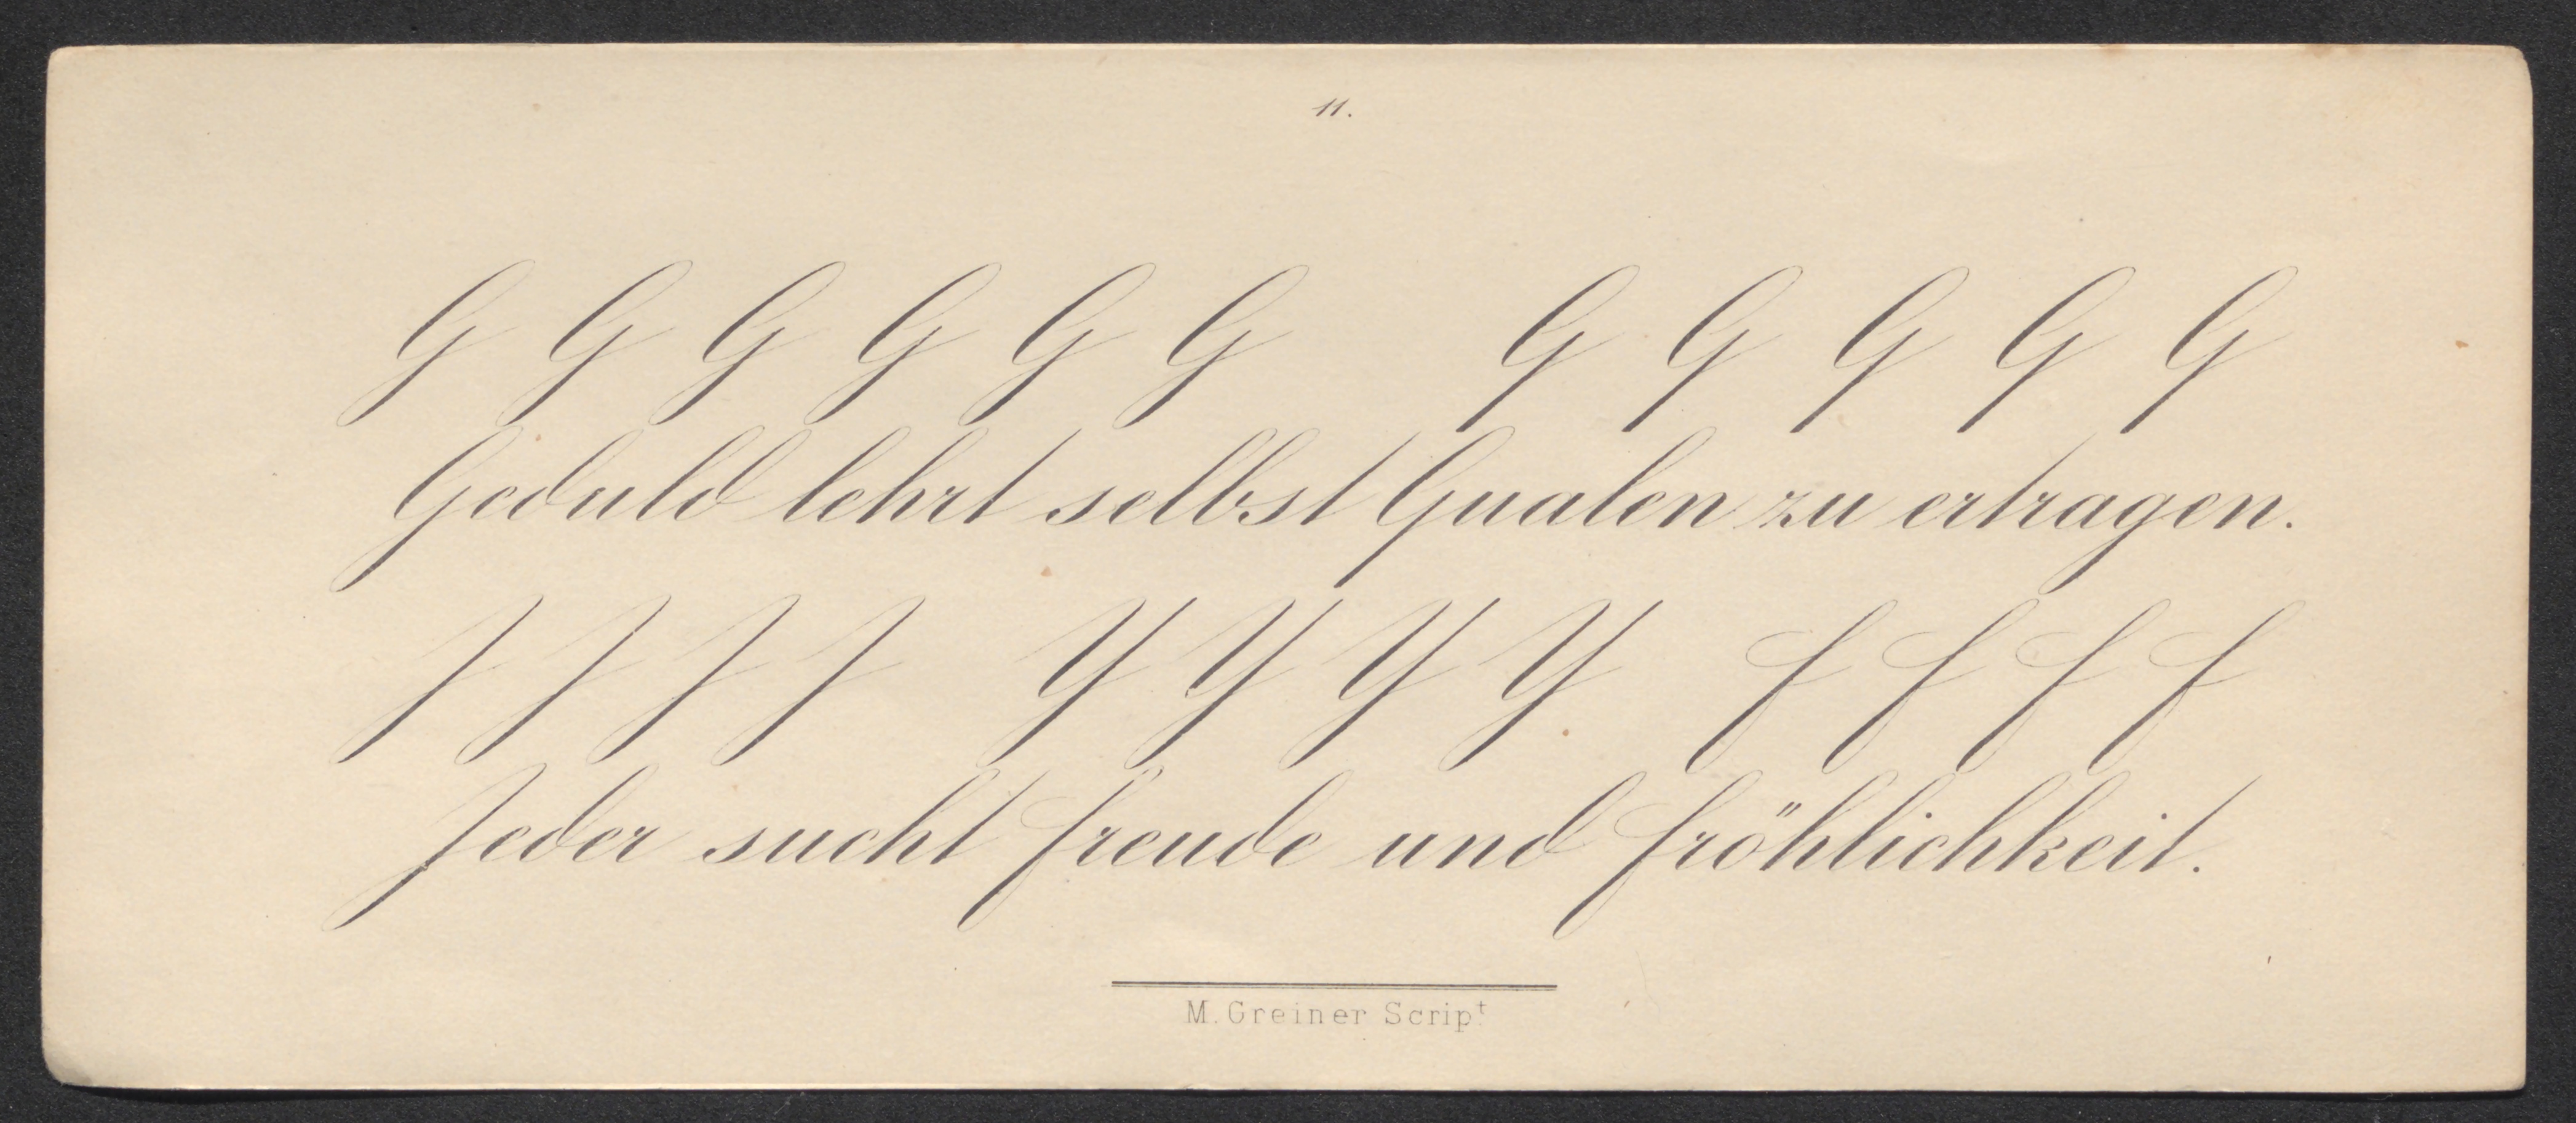 11.
G G G G G G Q Q Q Q Q
Geduld lehrt selbst Qualen zu ertragen.
J J J J Y Y Y Y f f f f
Jeder sucht freude und fröhlichkeit.
M. Greiner Script.